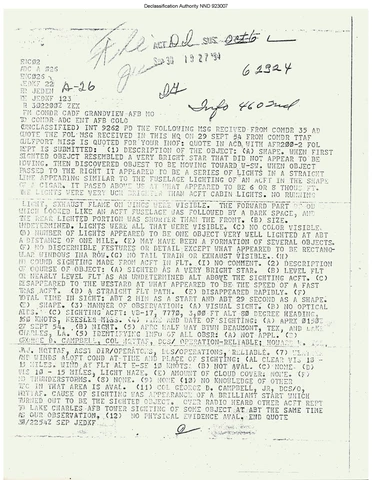 Declassification Authority NND 923007
File
A-26
62324
Info 4602nd
JEDEN
JEDKF 123
FM COMDR CADF GRANDVIEW AFB MO
TO COMDR ADC ENT AFB COLO
UNCLASSIFIED) INT 9262 PD THE FOLLOWING MSG RECEIVED FROM COMDR 35 AD
QUOTE THE FOL MSG RECEIVED THIS HQ ON 29 SEPT 54 FROM COMDR TTAF
GULFPORT MISS IS QUOTED FOR YOUR INFO: QUOTE IN ACD WITH AFR200-2 FOL
REPT IS SUBMITTED: (1) DESCRIPTION OF THE OBJECT: (A) SHAPE. WHEN FIRST
SIGHTED OBJCT RESEMBLED A VERY BRIGHT STAR THAT DID NOT APPEAR TO BE
MOVING, THEN DISCOVERED OBJECT TO BE MOVING TOWARD W-SW. WHEN OBJECT
PASSED TO THE RIGHT IT APPEARED TO BE A SERIES OF LIGHTS IN A STRAIGHT
LINE APPEARING SIMILAR TO THE FUSELAGE LIGHTING OF AN ACFT IN THE SHAPE
OF A CIGAR. IT PASSED ABOVE US AT WHAT APPEARED TO BE 6 OR 8 THOUS FT.
THE LIGHTS WERE VERY MUCH BRIGHTER THAN ACFT CABIN LIGHTS. NO RUNNING
LIGHT, EXHAUST FLAME ON WINGS WERE VISIBLE. THE FORWARD PART
WHICH LOOKED LIKE AN ACFT FUSELAGE WAS FOLLOWED BY A DARK SPACE, AND
THE REAR LIGHTED PORTION WAS SHORTER THAN THE FRONT. (B) SIZE.
UNDETERMINED. LIGHTS WERE ALL THAT WERE VISIBLE. (C) NO COLOR VISIBLE.
(D) NUMBER OF LIGHTS APPEARED TO BE ONE OBJECT VERY WELL LIGHTED AT ABT
A DISTANCE OF ONE MILE. (E) MAY HAVE BEEN A FORMATION OF SEVERAL OBJECTS.
(F) NO DISCERNIBLE FEATURES OR DETAIL EXCEPT WHAT APPEARED TO BE RECTANG-
ULAR WINDOWS IN A ROW. (G) NO TAIL TRAIN OR EXHAUST VISIBLE. (H)
NO SOUND SIGHTING MADE FROM ACFT IN FLT. (I) NO COMMENT. (2) DESCRIPTION
OF COURSE OF OBJECT: (A) SIGHTED AS A VERY BRIGHT STAR. (B) LEVEL FLT
ON NEARLY LEVEL FLT AS AN UNDETERMINED ALT ABOVE THE SIGHTING ACFT. (C)
DISAPPEARED TO THE WESTARD AT WHAT APPEARED TO BE THE SPEED OF A FAST
ACFT. (D) A STRAIGHT FLT PATH. (E) DISAPPEARED RAPIDLY. (F)
TOTAL TIME IN SIGHT: ABT 2 MIN AS A START AND ABT 29 SECOND AS A SHAPE.
(3) MANNER OF OBSERVATION: (A) VISUAL SIGHT. (B) NO OPTICAL-
(C) SIGHTING ACFT: VB-17, 7770, 3,000 FT ALT 80 DEGREE HEADING,
KNOTS, KEESLER MISS. (4) TIME AND DATE OF SIGHTING:
27 SEPT 54. (B) NIGHT. (5) APRX HALF WAY BTWN BEAUMONT, TEX, AND LAKE
CHARLES, LA. (6) IDENTIFYING INFO OF ALL OBSR: (A) NOT APPL.
GEORGE D. CAMPBELL, COL HQTTAF, DCS/ OPERATION-RELIABLE;
HQTTAF, ASST DIR/OPERATIONS, DCS/OPERATIONS, RELIABLE. (7)
AND WINDS ALOFT COND AT TIME AND PLACE OF SIGHTING: (A) CLEAR
15 MILES. WIND AT FLT ALT E-SE 10 KNOTS. (B) NOT AVAL. (C) NONE. (D)
15 MILES, LIGHT HAZE. (E) AMOUNT OF CLOUD COVER: NONE. (F)
NO THUNDERSTORMS. (8) NONE. (9) NONE (10) NO KNOWLEDGE OF OTHER
IN THAT AREA IS AVAL. (11) COL GEORGE D. CAMPBELL, JR, DCS/O,
HQTTAF. CAUSE OF SIGHTING WAS APPEARANCE OF A BRILLIANT START WHICH
TURNED OUT TO BE THE SIGHTED OBJECT. OVER RADIO HEARD OTHER ACFT REPT
TO LAKE CHARLES AFB TOWER SIGHTING OF SOME OBJECT AT ABT THE SAME TIME
AS OUR OBSERVATION, (12) NO PHYSICAL EVIDENCE AVAL. END QUOTE
30/2254Z SEP JEDKF